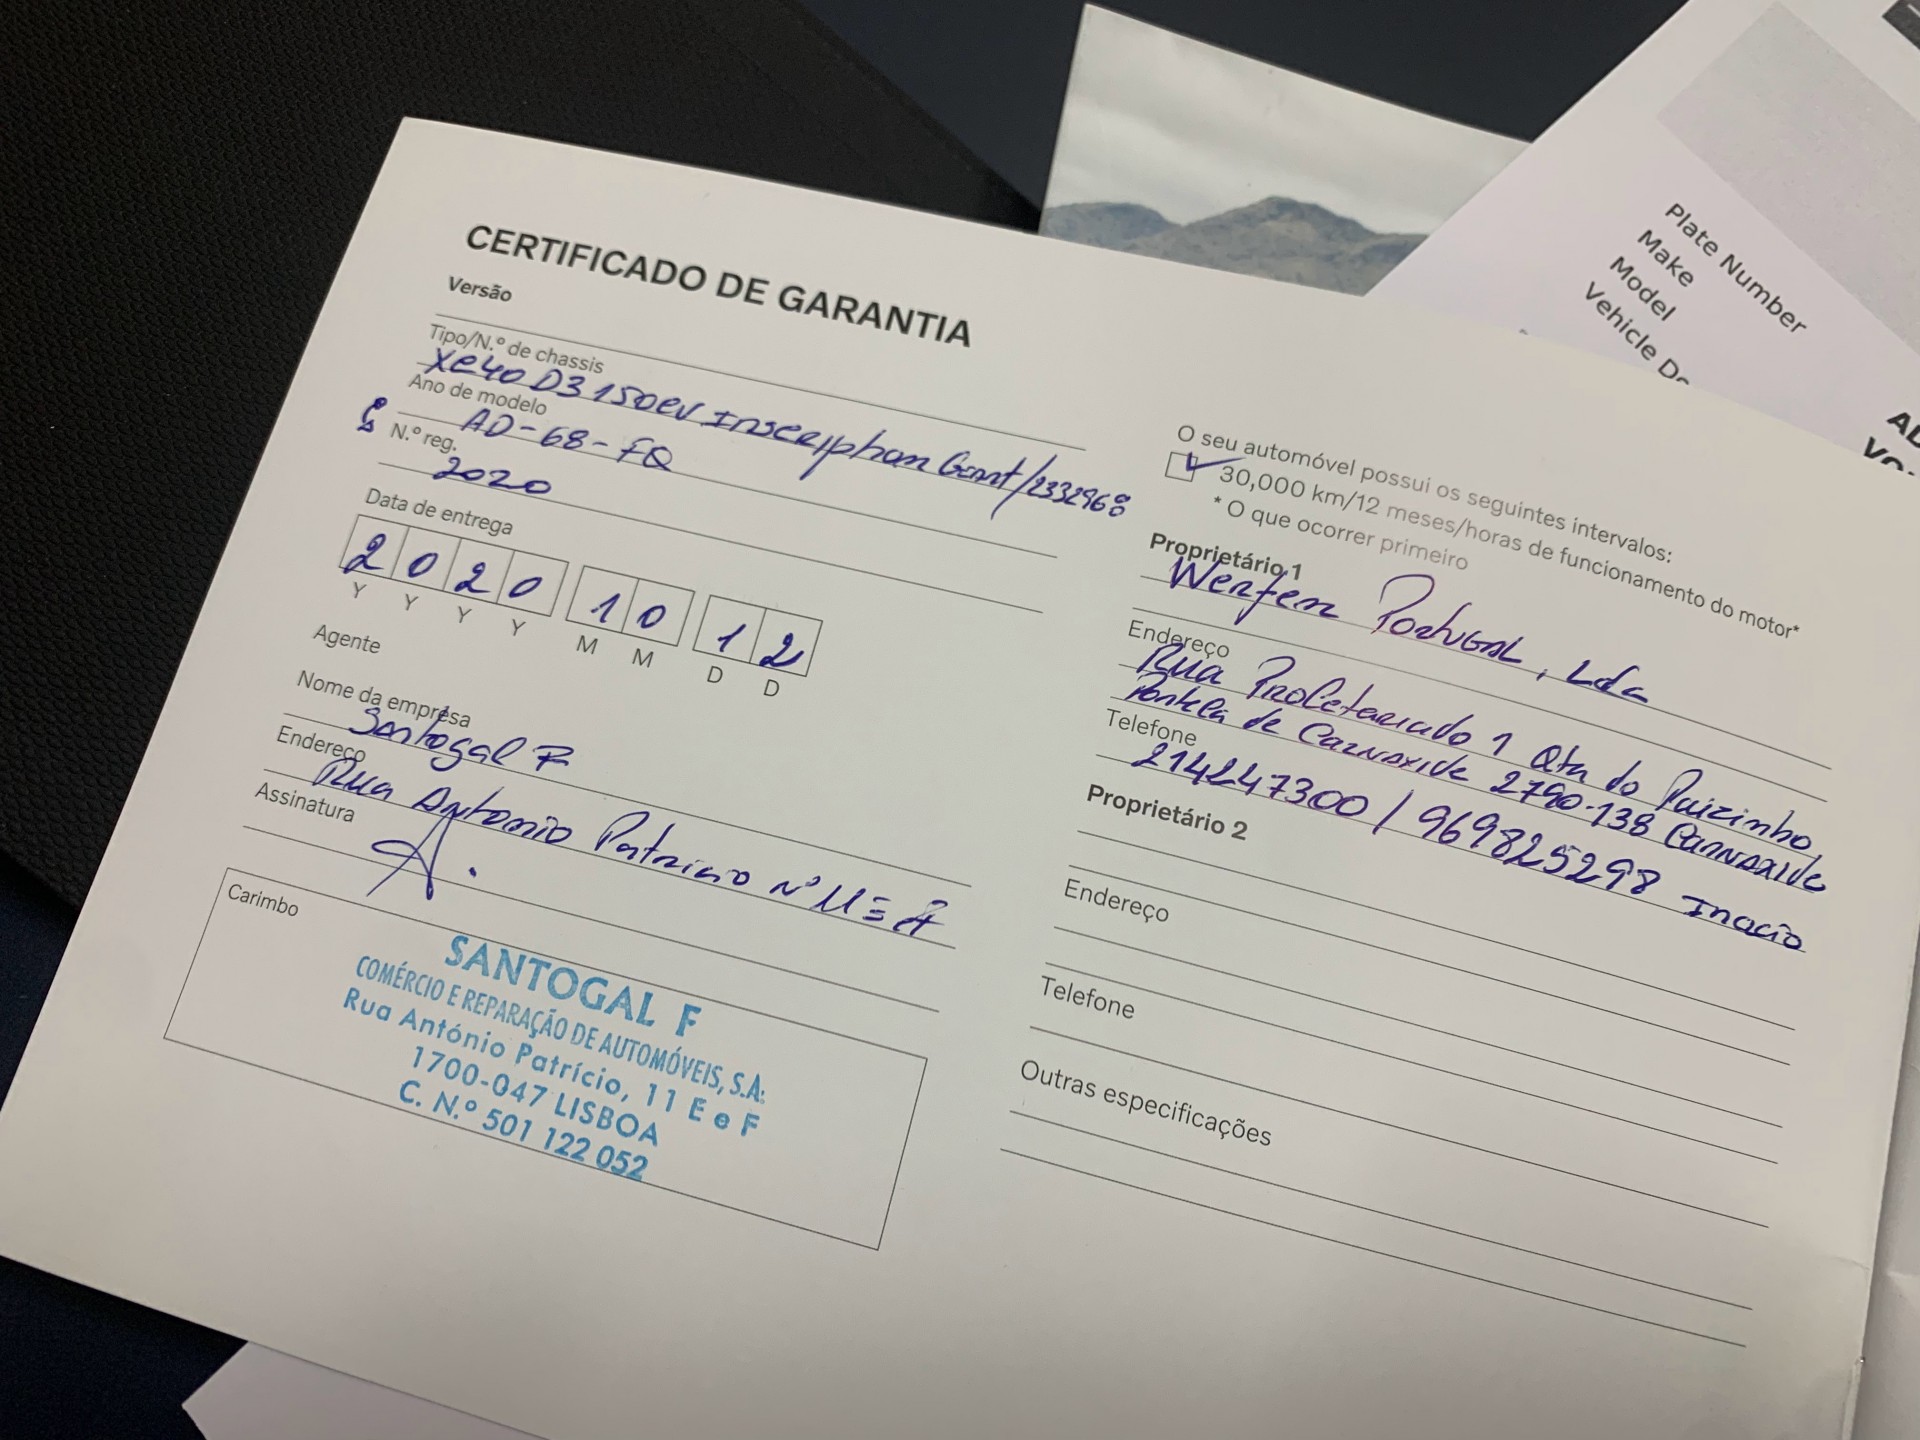 CERTIFICADO DE GARANTIA
Versão
Tipo/N.º de chassis
XC40 D3 150cv Inscription Geart/2332968
Ano de modelo
AD-68-FQ
N.º reg.
2020
Data de entrega
2020 10 12
Y Y Y Y M M D D
Agente
Nome da empresa
Santogal F
Endereço
Rua Antonio Patricio Nº 11 E F
Assinatura
Carimbo
SANTOGAL F
COMÉRCIO E REPARAÇÃO DE AUTOMÓVEIS, S.A.
Rua António Patrício, 11 E e F
1700-047 LISBOA
C. N.º 501 122 052
O seu automóvel possui os seguintes intervalos:
30,000 km/12 meses/horas de funcionamento do motor*
* O que ocorrer primeiro
Proprietário 1
Werfen Portugal, Lda
Endereço
Rua Proletariado 1 Qta do Paizinho
Portela de Carnaxide 2790-138 Carnaxide
Telefone
214247300 / 969825298 Inacio
Proprietário 2
Endereço
Telefone
Outras especificações
Plate Number
Make
Model
Vehicle